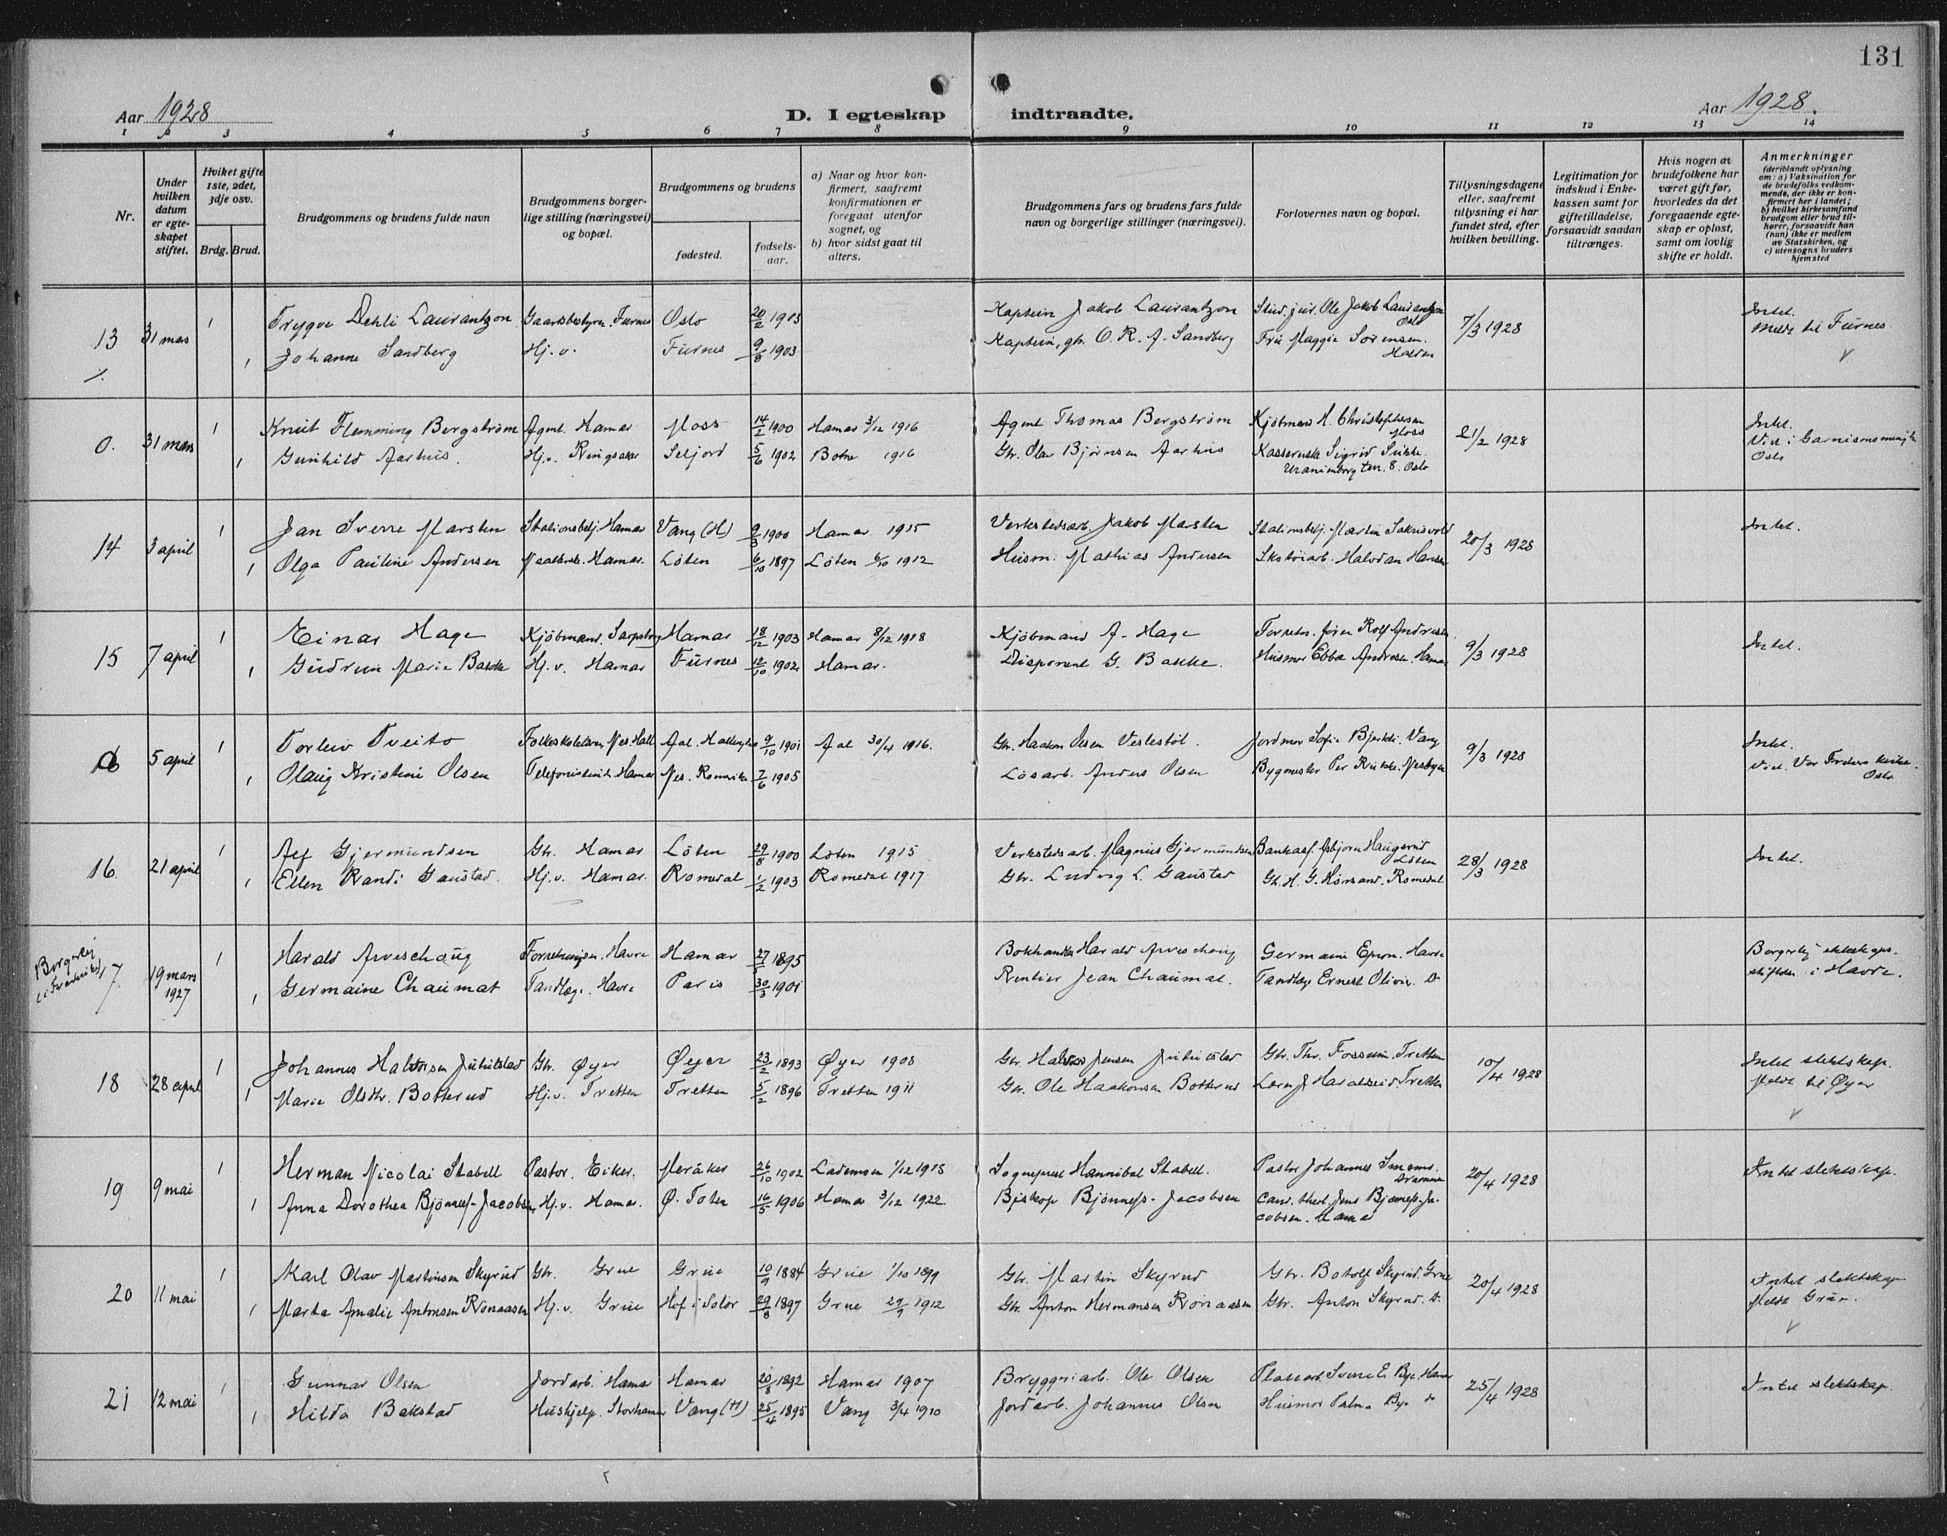 131
Aar 1928
D. I egteskap indtraadte.
Aar 1928.
1 2 3 4 5 6 7 8 9 10 11 12 13 14
Nr.
Under hvilken datum er egteskapet stiftet.
Hviket gifte 1ste, 2det, 3dje osv.
Brdg. Brud.
Brudgommens og brudens fulde navn
Brudgommens borgerlige stilling (næringsvei) og bopæl.
Brudgommens og brudens
fødested.
fødselsaar.
a) Naar og hvor konfirmert, saafremt konfirmationen er foregaat utenfor sognet, og
b) hvor sidst gaat til alters.
Brudgommens fars og brudens fars fulde navn og borgerlige stillinger (næringsvei).
Forlovernes navn og bopæl.
Tillysningsdagene eller, saafremt tillysning ei har fundet sted, efter hvilken bevilling.
Legitimation for indskud i Enkekassen samt for giftetilladelse, forsaavidt saadan tiltrænges.
Hvis nogen av brudefolkene har været gift før, hvorledes da det foregaaende egteskap er opløst, samt om lovlig skifte er holdt.
Anmerkninger (deriblandt oplysning om: a) Vaksination for de brudefolks vedkommende, der ikke er konfirmert her i landet; b) hvilket kirkesamfund brudgom eller brud tilhører, forsaavidt han (hun) ikke er medlem av Statskirken, og c) utensogns bruders hjemsted
13 31 mars 1 Trygve Dehli Laurantzon Gaardsbestyrer, Furnes Oslo 20/2 1903 Kaptein Jakob Laurantzon Stud. jur. Ole Jakob Laurantzon Oslo 7/3 1928 Intet. Meldt til Furnes.
1 Johanne Sandberg Hj.v. Furnes 9/8 1903 Kaptein, gbr. O. R. A. Sandberg Fru Maggie Sørensen. Halden
0. 31 mars 1 Knut Flemming Bergstrøm Agent. Hamar Moss 14/2 1900 Hamar 3/12 1916 Agent Thomas Bergstrøm Kjøbmand H. Christophersen Moss 21/2 1928 Intet. Viet i Garnisonsmenigh Oslo
1 Gunhild Aarhus. Hj.v. Ringsaker Seljord 5/6 1902 Botne 1916 Gbr. Olav Bjørnsen Aarhus Kassererske Sigrid Sukke. Uranienborg ter. 8. Oslo
14 3 april 1 Jan Sverre Marsten Stationsbetj. Hamar Vang (H) 9/3 1900 Hamar 1915 Verkstedsarb. Jakob Masten Stationsbetj. Martin Sakrisvold 20/3 1928 Intet.
1 Olga Pauline Andersen Hamar. Løten 6/10 1897 Løten 6/10 1912 Husm. Mathias Andersen Skotøiarb. Halvdan Hansen
15 7 april 1 Einar Hage Kjøbmand. Sarpsborg Hamar 18/12 1903 Hamar 8/12 1918 Kjøbmand A. Hage Rolf Andresen. 9/3 1928 Intet.
1 Gudrun Marie Bakke Hj.v. Hamar Furnes 12/10 1902 Hamar. Disponent G. Bakke. Husmor Ebba Andresen. Hamar
0 5 april 1 Torleiv Tveito Folkeskolelærer, Nes. Hall Aal. Hallingdal 9/10 1901 Aal 30/4 1916. Gbr. Haakon Olsen Veslestøl. Jordmor Sofie Bjerke. Vang 9/3 1928 Intet. Viet. Vor Frelsers kirke. Oslo.
1 Olaug Kristine Olsen Telefonistinde Hamar Nes. Romerike 7/6 1905 Løsarb. Anders Olsen Bygmester Per Rukke. Nesbyen
16 21 april 1 Alf Gjermundsen Gbr. Hamar Løten 29/8 1900 Løten 1915 Verkstedsarb. Magnus Gjermundsen Bankass. Asbjørn Haugsrud Løten 28/3 1928 Intet.
1 Ellen Randi Gaustad. Hj.v. Hamar. Romedal 1/2 1903 Romedal 1917 Gbr. Ludvig L. Gaustad Gbr. H. G. Romedal
Borgerlig i Frankrike 17 19 mars 1927 1 Harald Arveschoug Havre Hamar 1895 Bokhandler Harald Arveschoug Germaine Epron. Havre Borgerlig ekteskapsstiftelse i Havre.
1 Germaine Chaumat Tandlæge. Havre Paris 30/3 1901 Rentier Jean Chaumat. Tandlæge Ernest Olivier. Do
18 28 april 1 Johannes Halvorsen Julutstad Gbr. Øyer Øyer 23/2 1893 Øyer 1908 Gbr. Halvor Jensen Julutstad Gbr. Thr. Fossum, Tretten 10/4 1928 Intet slektskap. Meldt til Øyer
1 Marie Olsdtr. Botterud Hj.v. Tretten Tretten 5/2 1896 Tretten 1911 Gbr. Ole Haakonsen Botterud Haraldseid, Tretten
19 9 mai 1 Herman Nicolai Stabell Pastor. Eiker. Meråker 26/10 1902 Lademoen 1/12 1918 Sogneprest Hannibal Stabell. Pastor Johannes Smemo. Drammen 20/4 1928 Intet slektskap.
1 Anna Dorothea Bjønness-Jacobsen Hj.v. Hamar. Ø. Toten 16/5 1906 Hamar 3/12 1922 Biskop Bjønness-Jacobsen Cand. theol. Jens Bjønness-Jacobsen. Hamar
20 11 mai 1 Karl Olav Martinsen Skyrud Gbr. Grue Grue 10/9 1884 Grue 1/10 1899 Gbr. Martin Skyrud Gbr. Botolf Skyrud. Grue 20/4 1928 Intet slektskap Meldt Grue.
1 Marta Amalie Antonsen Rønaasen Hj.v. Grue Hof i Solør 29/8 1897 Grue 29/9 1912 Gbr. Anton Hermansen Rønaasen Gbr. Anton Skyrud. Do.
21 12 mai 1 Gunnar Olsen Jordarb. Hamar Hamar 20/8 1892 Hamar 1907 Bryggeriarb. Ole Olsen Sverre E. Bye. Hamar 25/4 1928 Intet slektskap.
1 Hilda Bakstad Hushjelp. Storhamar Vang (H) 25/4 1895 Vang 3/4 1910 Jordarb. Johannes Olsen Husmor Palma Bye do